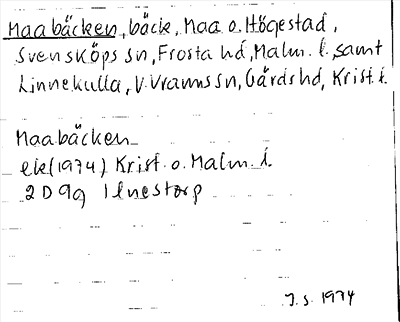 Maabäcken, bäck, Maa o. Högestad,
Svensköps sn, Frosta hd, Malm. l. samt
Linnekulla, V. Vrams sn, Gärds hd, Krist. l.
Maabäcken
ek (1974) Krist. o. Malm. l.
2D 9g Ilnestorp
J.S. 1974